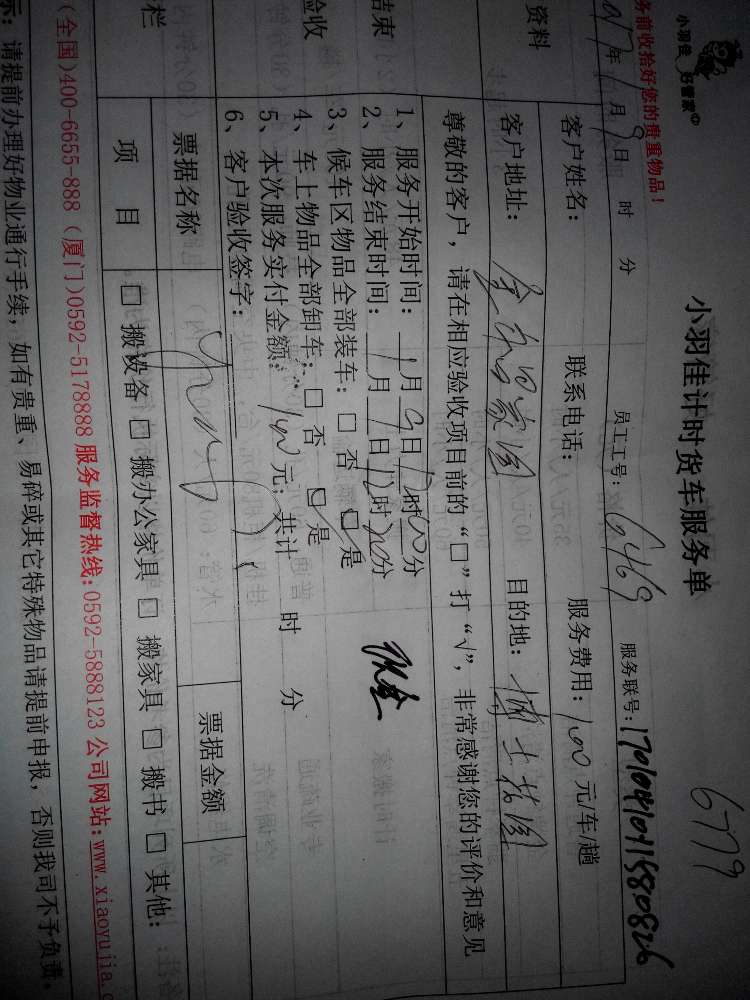 小羽佳 好管家
小羽佳计时货车服务单
6779
务前收拾好您的贵重物品！
2017年1月9日 时 分 员工工号：6469 服务联号：1701041011580826
资料
客户姓名： 联系电话： 服务费用：100元/车/趟
客户地址： 家园 目的地： 博士花园
尊敬的客户，请在相应验收项目前的“□”打“√”，非常感谢您的评价和意见
结束
验收
1、服务开始时间：1月9日17时00分
2、服务结束时间：1月 日 时20分 现金
3、候车区物品全部装车：□ 否 ☑ 是
4、车上物品全部卸车：□ 否 ☑ 是
5、本次服务实付金额：100元；共计 时 分
6、客户验收签字：
栏
票据名称 票据金额
项 目 □ 搬设备 □ 搬办公家具 □ 搬家具 □ 搬书 □ 其他：
(全国)400-6655-888 (厦门)0592-5178888 服务监督热线:0592-5888123 公司网站:www.xiaoyujia.c
示：请提前办理好物业通行手续，如有贵重、易碎或其它特殊物品请提前申报，否则我司不予负责。